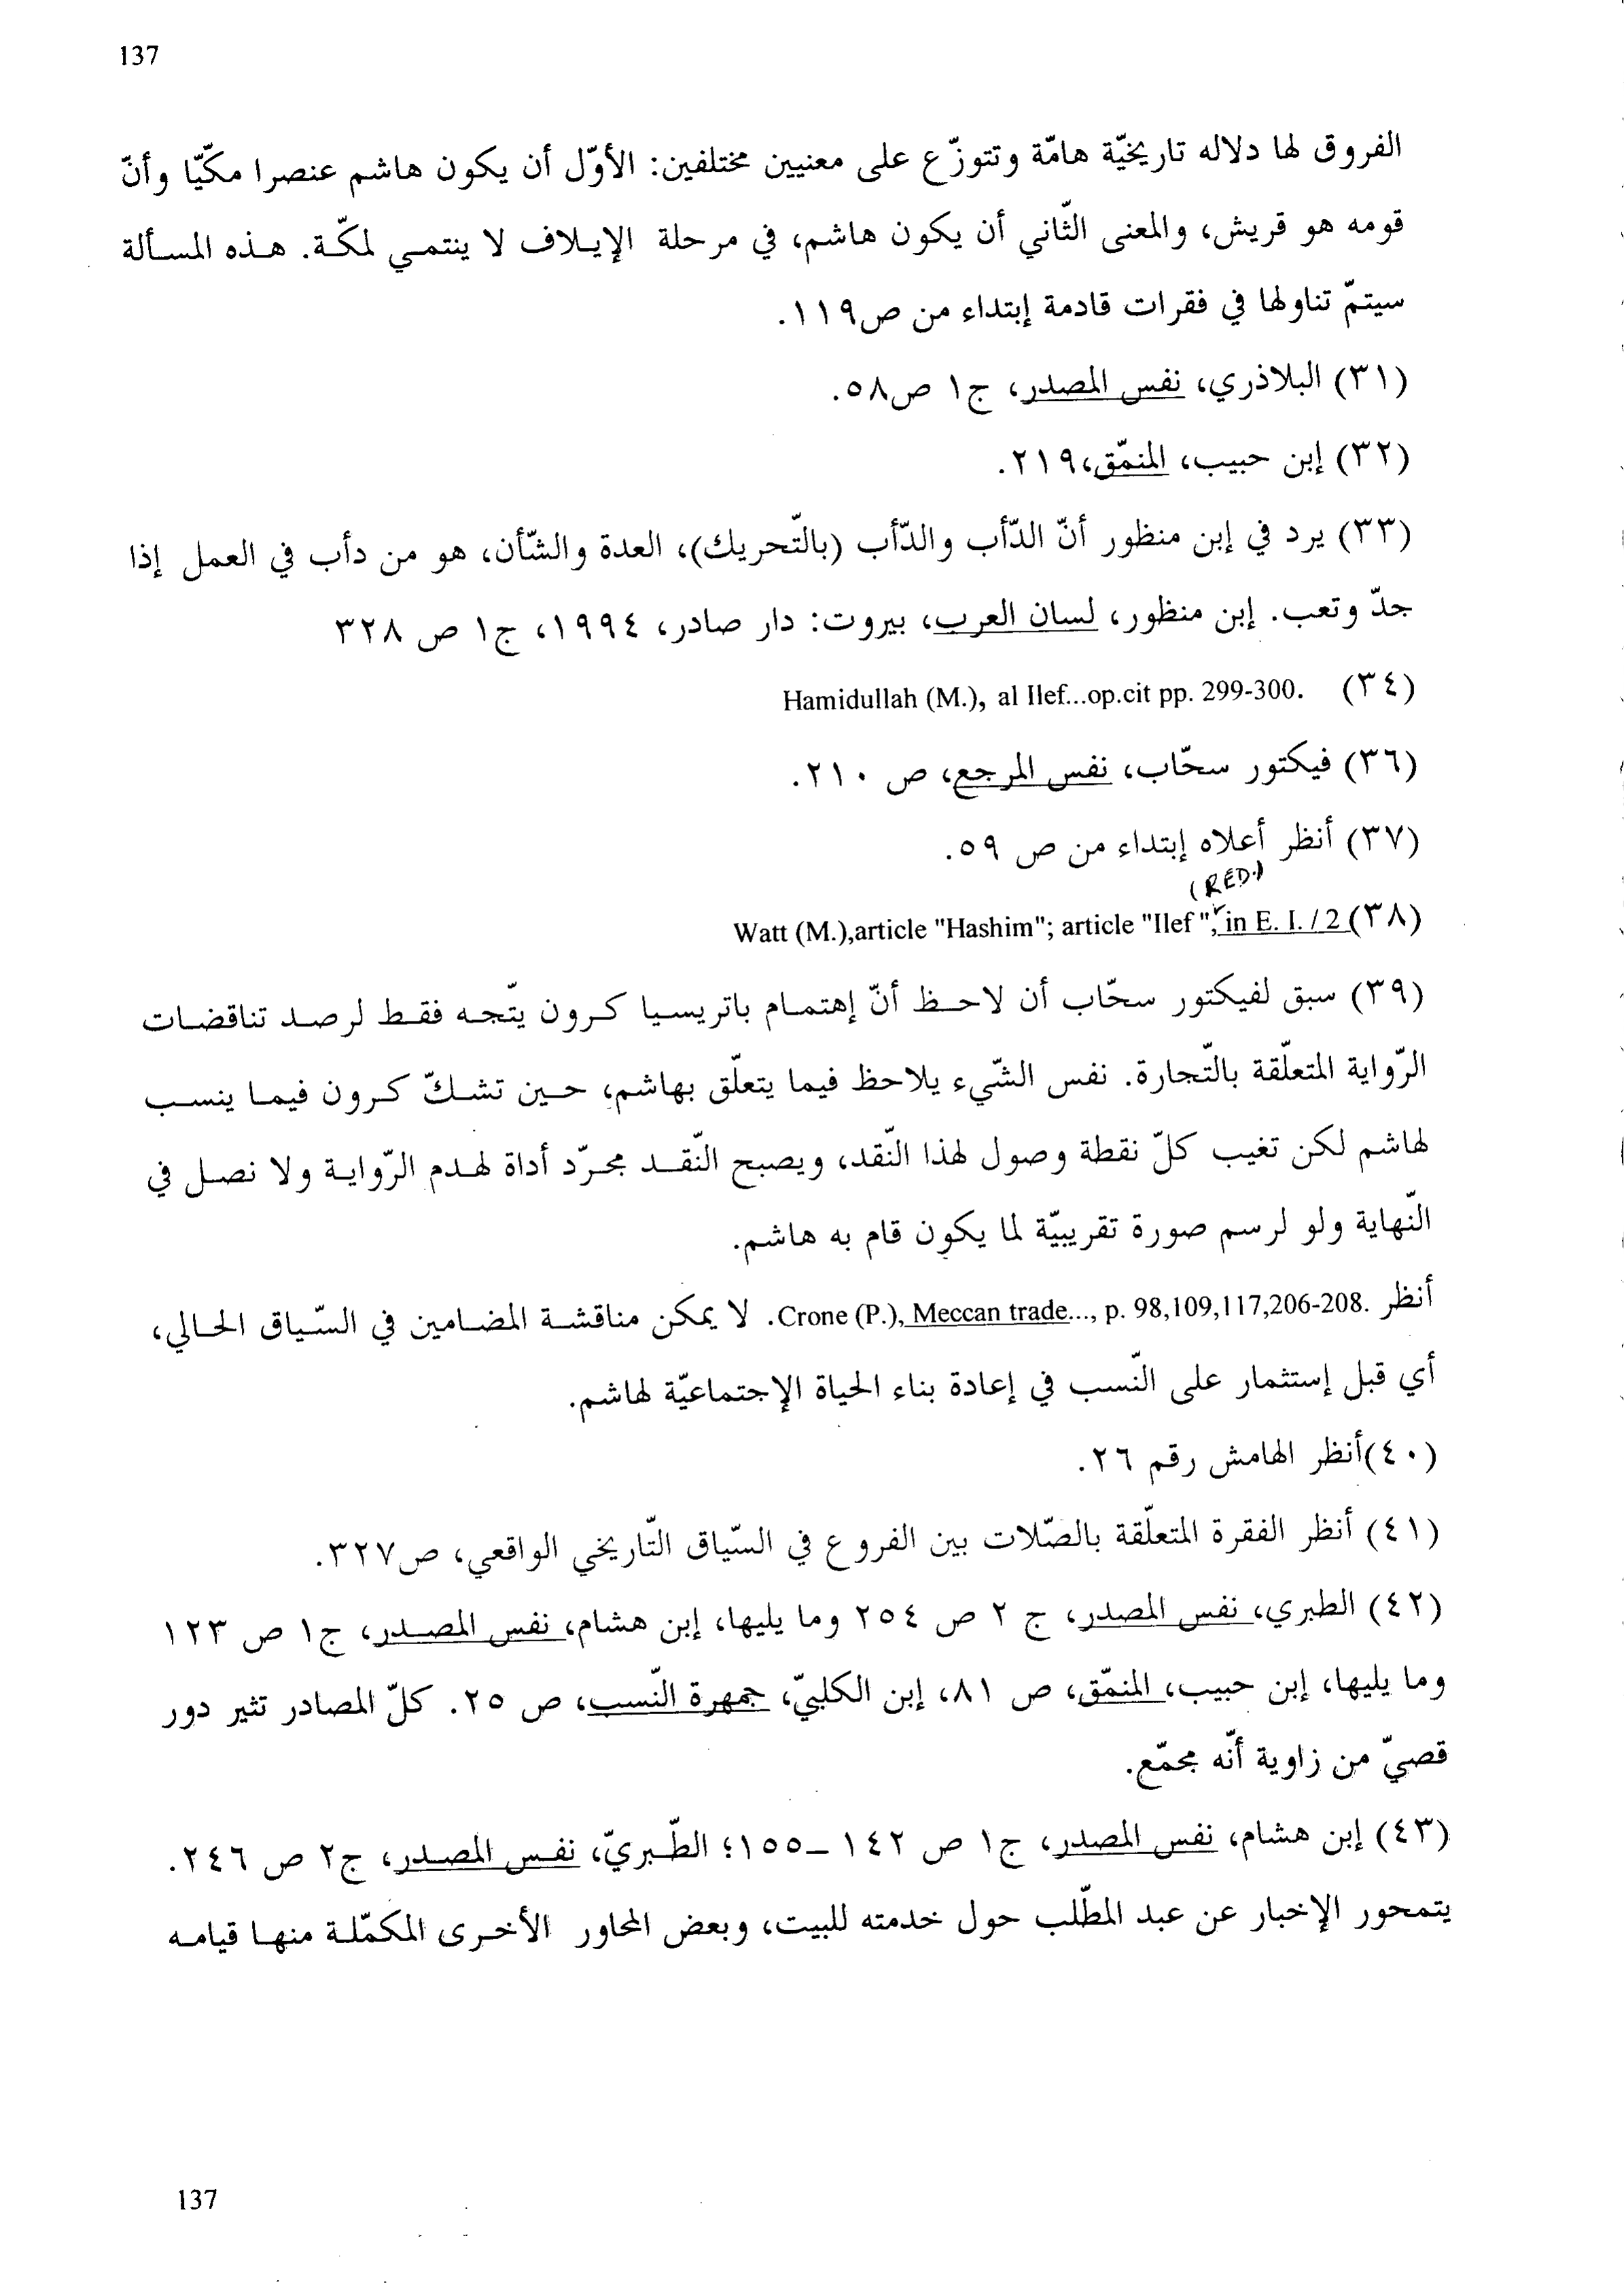 137
الفروق لها دلاله تاريخيّة هامّة وتتوزّع على معنيين مختلفين: الأوّل أن يكون هاشم عنصرا مكّيّا وأنّ
قومه هو قريش، والمعنى الثّاني أن يكون هاشم، في مرحلة الإيلاف لا ينتمي لمكّة. هذه المسألة
سيتمّ تناولها في فقرات قادمة إبتداء من ص١١٩.
(٣١) البلاذري، نفس المصدر، ج١ ص٥٨.
(٣٢) إبن حبيب، المنمّق،٢١٩.
(٣٣) يرد في إبن منظور أنّ الدّأب والدّأب (بالتّحريك)، العدة والشّأن، هو من دأب في العمل إذا
جدّ وتعب. إبن منظور، لسان العرب، بيروت: دار صادر، ١٩٩٤، ج١ ص ٣٢٨
(٣٤) Hamidullah (M.), al Ilef...op.cit pp. 299-300.
(٣٦) فيكتور سحّاب، نفس المرجع، ص ٢١٠.
(٣٧) أنظر أعلاه إبتداء من ص ٥٩.
(RED.)
(٣٨) Watt (M.),article "Hashim"; article "Ilef ", in E. I. / 2
(٣٩) سبق لفيكتور سحّاب أن لاحظ أنّ إهتمام باتريسيا كرون يتّجه فقط لرصد تناقضات
الرّواية المتعلّقة بالتّجارة. نفس الشّيء يلاحظ فيما يتعلّق بهاشم، حين تشكّ كرون فيما ينسب
لهاشم لكن تغيب كلّ نقطة وصول لهذا النّقد، ويصبح النّقد مجرّد أداة لهدم الرّواية ولا نصل في
النّهاية ولو لرسم صورة تقريبيّة لما يكون قام به هاشم.
أنظر Crone (P.), Meccan trade..., p. 98,109,117,206-208. . لا يمكن مناقشة المضامين في السّياق الحالي،
أي قبل إستثمار على النّسب في إعادة بناء الحياة الإجتماعيّة لهاشم.
(٤٠)أنظر الهامش رقم ٢٦.
(٤١) أنظر الفقرة المتعلّقة بالصّلات بين الفروع في السّياق التّاريخي الواقعي، ص٣٢٧.
(٤٢) الطبري، نفس المصدر، ج ٢ ص ٢٥٤ وما يليها، إبن هشام، نفس المصدر، ج١ ص ١٢٣
وما يليها، إبن حبيب، المنمّق، ص ٨١، إبن الكلبيّ، جمهرة النّسب، ص ٢٥. كلّ المصادر تثير دور
قصيّ من زاوية أنّه مجمّع.
(٤٣) إبن هشام، نفس المصدر، ج١ ص ١٤٢ –١٥٥؛ الطّبريّ، نفس المصدر، ج٢ ص ٢٤٦.
يتمحور الإخبار عن عبد المطّلب حول خدمته للبيت، وبعض المحاور الأخرى المكمّلة منها قيامه
137